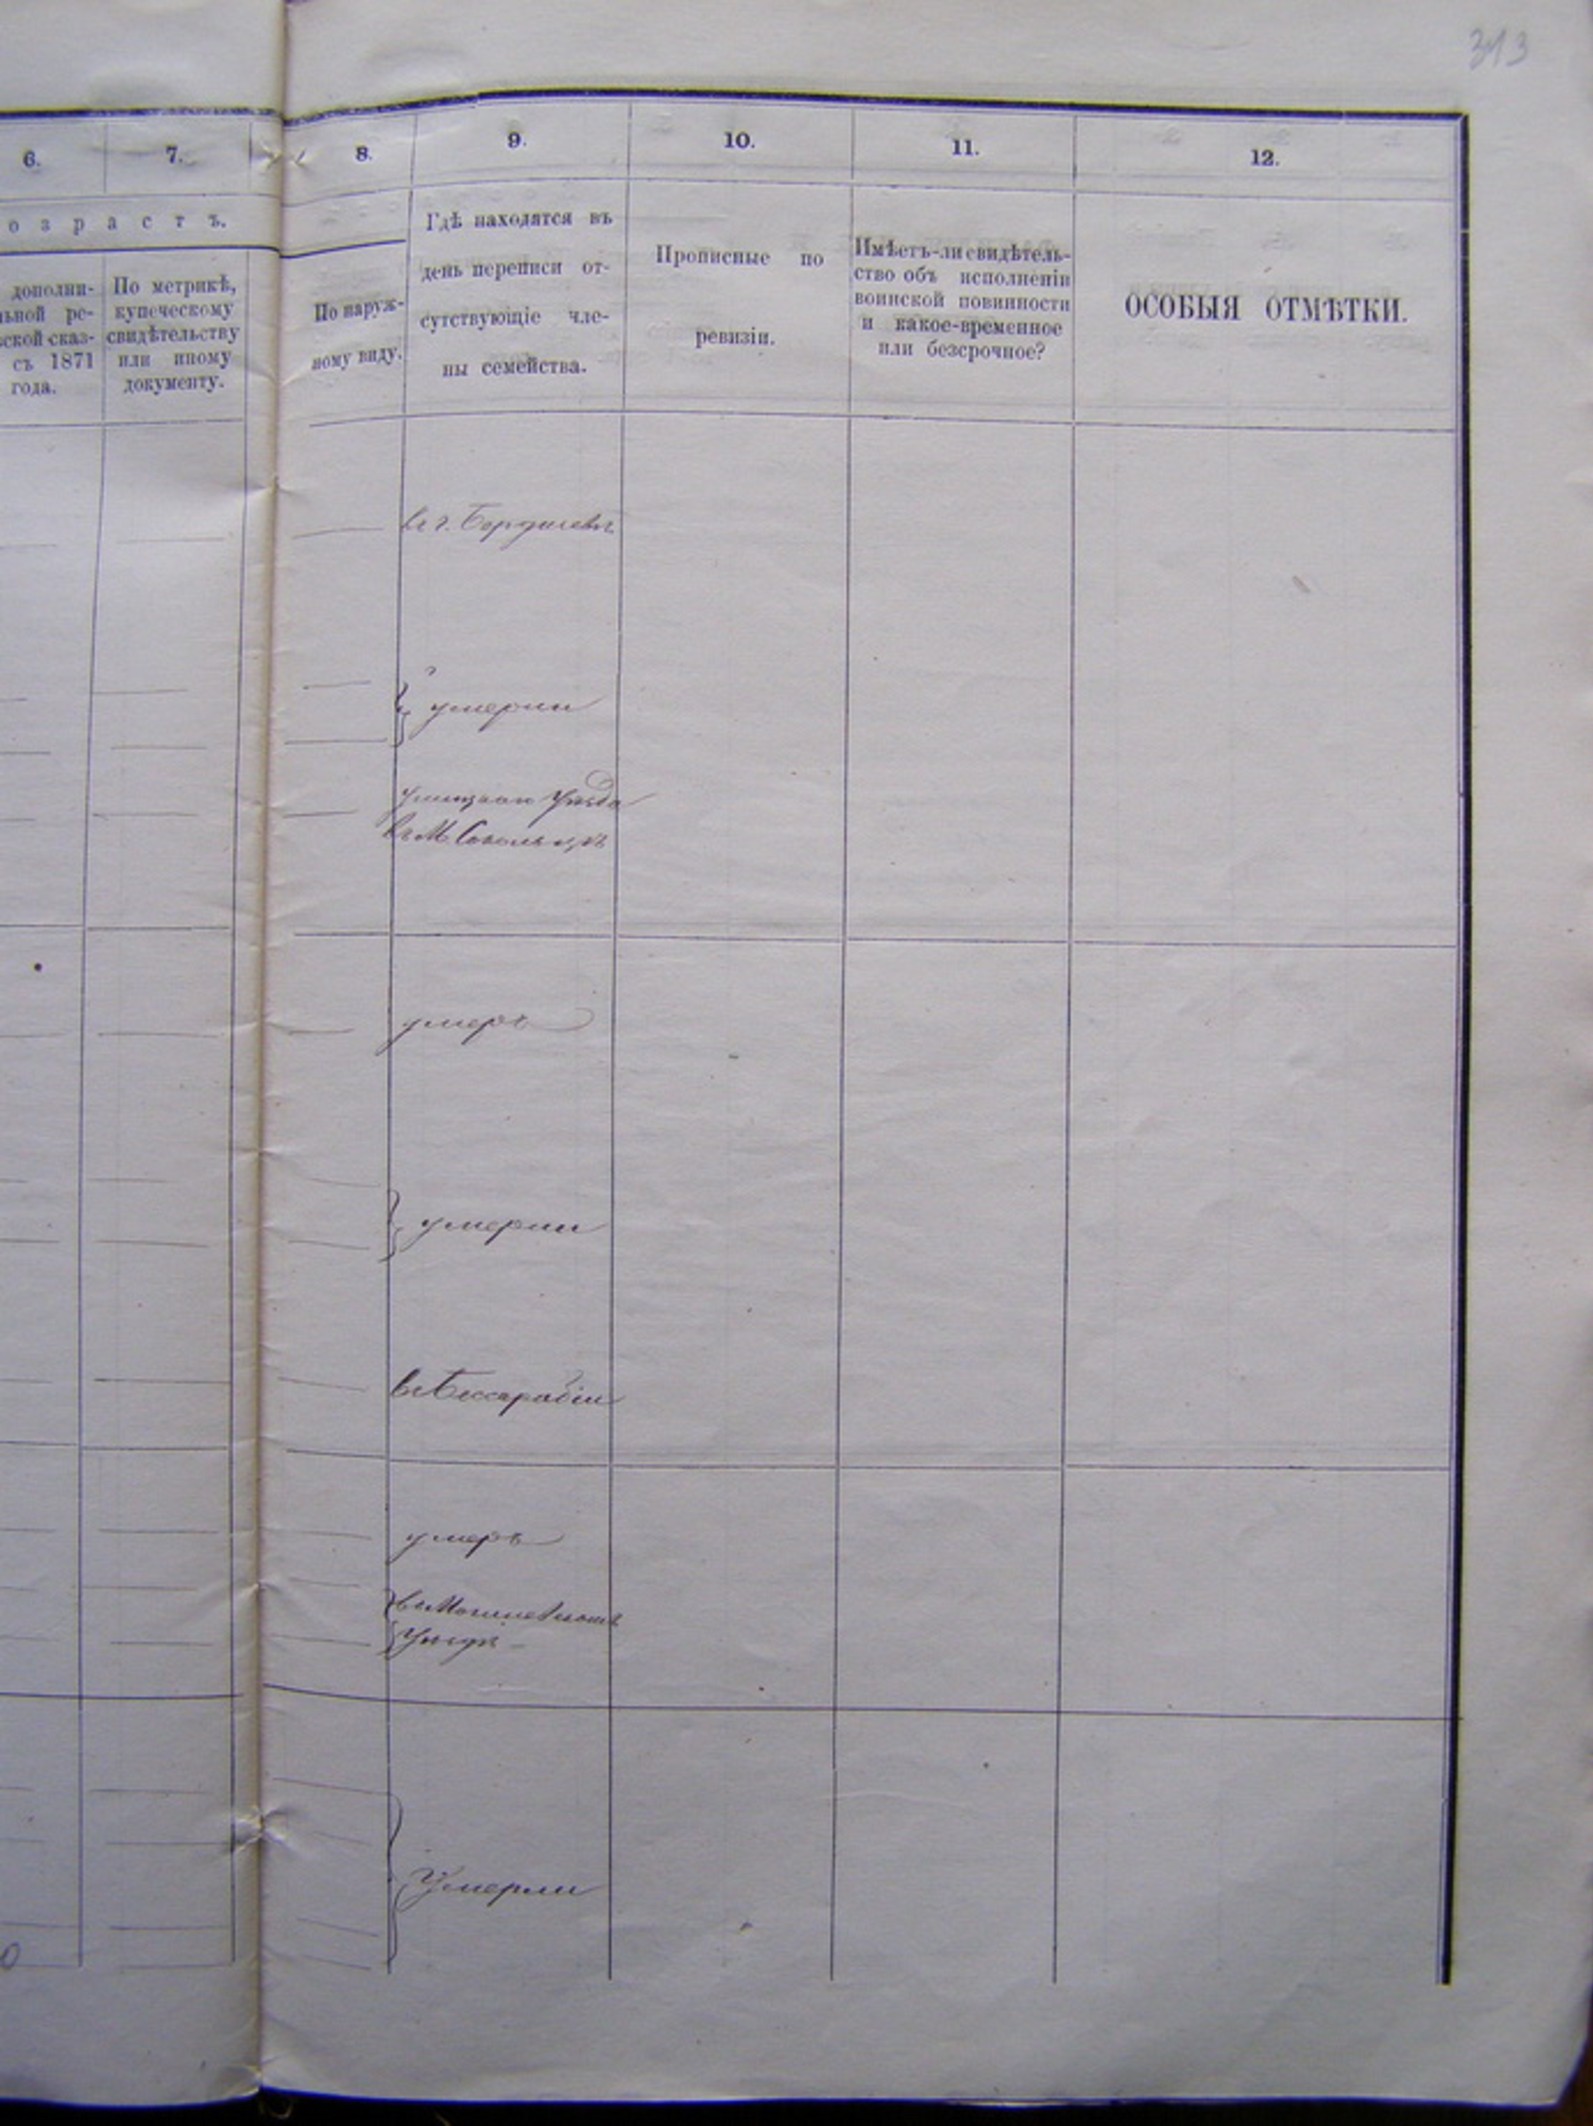 313
6. 7. 8. 9. 10. 11. 12.
о з р а с т ъ.
дополни-
ьной ре-
ской сказ-
съ 1871
года.
По метрикѣ,
купеческому
свидѣтельству
или иному
документу.
По наруж-
ному виду.
Гдѣ находятся въ
день переписи от-
сутствующіе чле-
ны семейства.
Прописные по
ревизіи.
Имѣетъ-ли свидѣтель-
ство объ исполненіи
воинской повинности
и какое-временное
или безсрочное?
ОСОБЫЯ ОТМѢТКИ.
въ г. Бердичевѣ
умерли
Ушицкаго Уѣзда
въ М.
умеръ
умерли
въ Бессарабіи
умеръ
въ Могилевскомъ
Уѣздѣ
Умерли
0